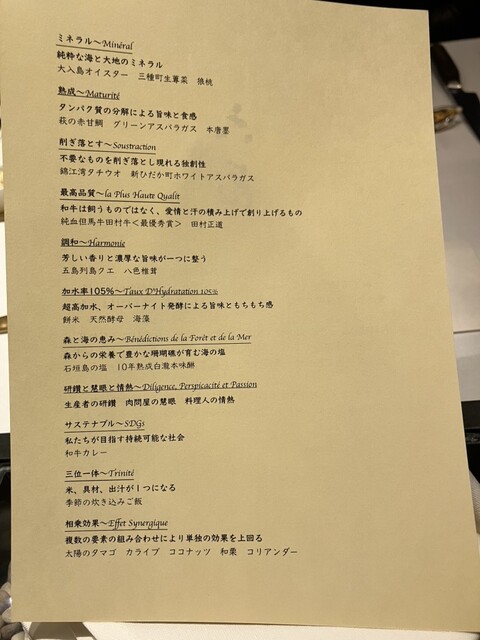 ミネラル～Minéral
純粋な海と大地のミネラル
大入島オイスター　三種町生蓴菜　狼桃
熟成～Maturité
タンパク質の分解による旨味と食感
萩の赤甘鯛　グリーンアスパラガス　本唐墨
削ぎ落とす～Soustraction
不要なものを削ぎ落とし現れる独創性
錦江湾タチウオ　新ひだか町ホワイトアスパラガス
最高品質～la Plus Haute Qualit
和牛は飼うものではなく、愛情と汗の積み上げで創り上げるもの
純血但馬牛田村牛＜最優秀賞＞　田村正道
調和～Harmonie
芳しい香りと濃厚な旨味が一つに整う
五島列島クエ　八色椎茸
加水率105%～Taux D'Hydratation 105%
超高加水、オーバーナイト発酵による旨味ともちもち感
餅米　天然酵母　海藻
森と海の恵み～Bénédictions de la Forêt et de la Mer
森からの栄養で豊かな珊瑚礁が育む海の塩
石垣島の塩　10年熟成白瀧本味醂
研鑽と慧眼と情熱～Diligence, Perspicacité et Passion
生産者の研鑽　肉問屋の慧眼　料理人の情熱
サステナブル～SDGs
私たちが目指す持続可能な社会
和牛カレー
三位一体～Trinité
米、具材、出汁が１つになる
季節の炊き込みご飯
相乗効果～Effet Synergique
複数の要素の組み合わせにより単独の効果を上回る
太陽のタマゴ　カライブ　ココナッツ　和栗　コリアンダー